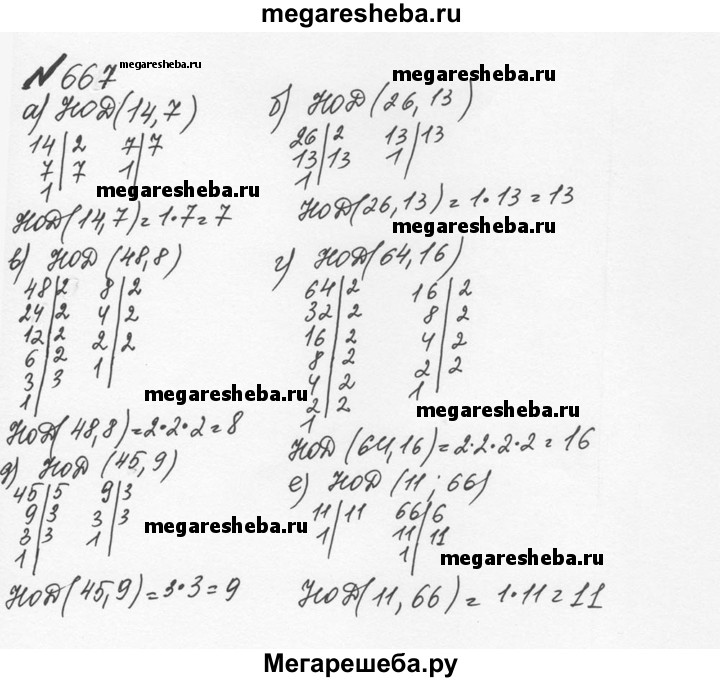 megaresheba.ru
№ 667 megaresheba.ru
megaresheba.ru
а) НОД(14,7)
14|2 7|7
7|7 1|
1|
megaresheba.ru
НОД(14,7)=1·7=7
б) НОД(26,13)
26|2 13|13
13|13 1|
1|
НОД(26,13)=1·13=13
в) НОД (48,8)
48|2 8|2
24|2 4|2
12|2 2|2
6|2 1|
3|3
1|
megaresheba.ru
НОД(48,8)=2·2·2=8
г) НОД(64,16)
64|2 16|2
32|2 8|2
16|2 4|2
8|2 2|2
4|2 1|
2|2
1
megaresheba.ru
НОД (64,16)=2·2·2·2=16
д) НОД (45,9)
45|5 9|3
9|3 3|3
3|3 1|
1|
megaresheba.ru
НОД(45,9)=3·3=9
е) НОД (11; 66)
11|11 66|6
1| 11|11
1|
megaresheba.ru
НОД(11,66)=1·11=11
Мегарешеба.ру